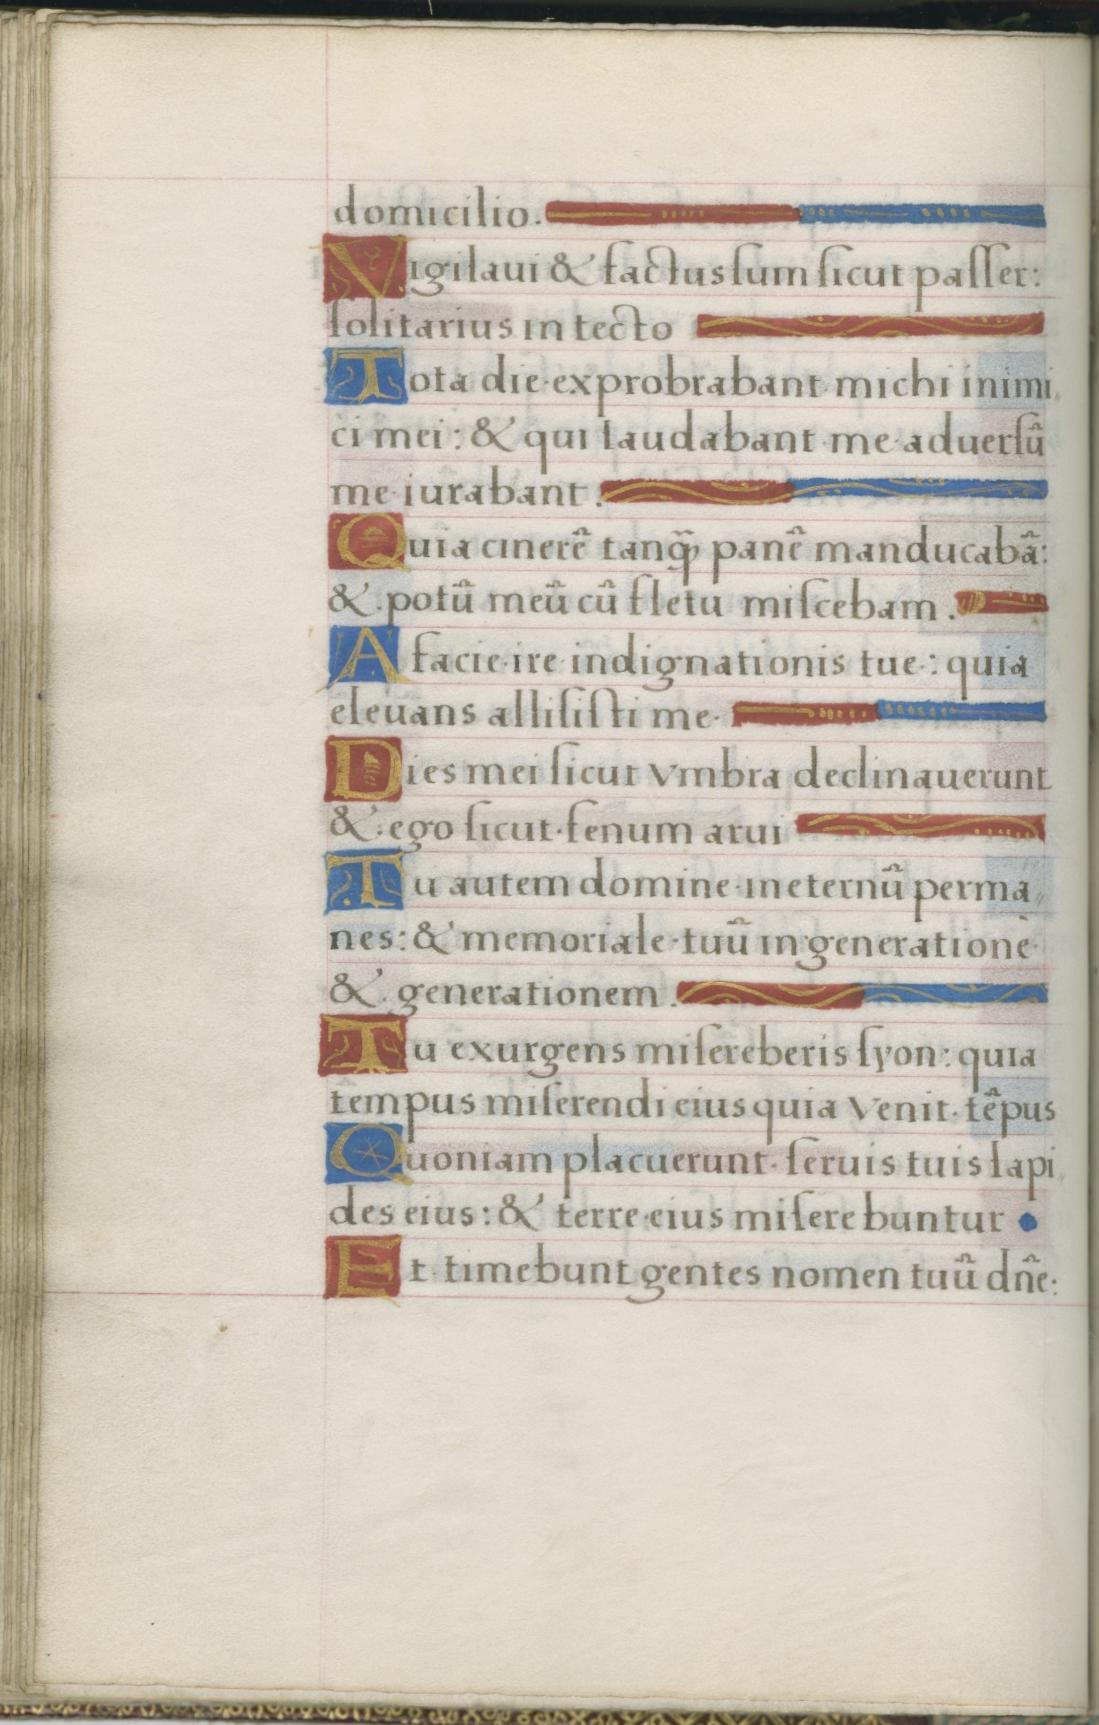 domicilio.
Vigilaui & factus sum sicut passer:
solitarius in tecto
Tota die exprobrabant michi inimi,
ci mei: & qui laudabant me aduersũ
me iurabant.
Quia cinerẽ tanq̃ panẽ manducabã:
& potũ meũ cũ fletu miscebam.
A facie ire indignationis tue: quia
eleuans allisisti me.
Dies mei sicut vmbra declinauerunt
& ego sicut fenum arui
Tu autem domine in eternũ perma,,
nes: & memoriale tuũ in generationẽ
& generationem.
Tu exurgens misereberis syon: quia
tempus miserendi eius quia venit tẽpus
Quoniam placuerunt seruis tuis lapi,
des eius: & terre eius miserebuntur
Et timebunt gentes nomen tuũ dñe: